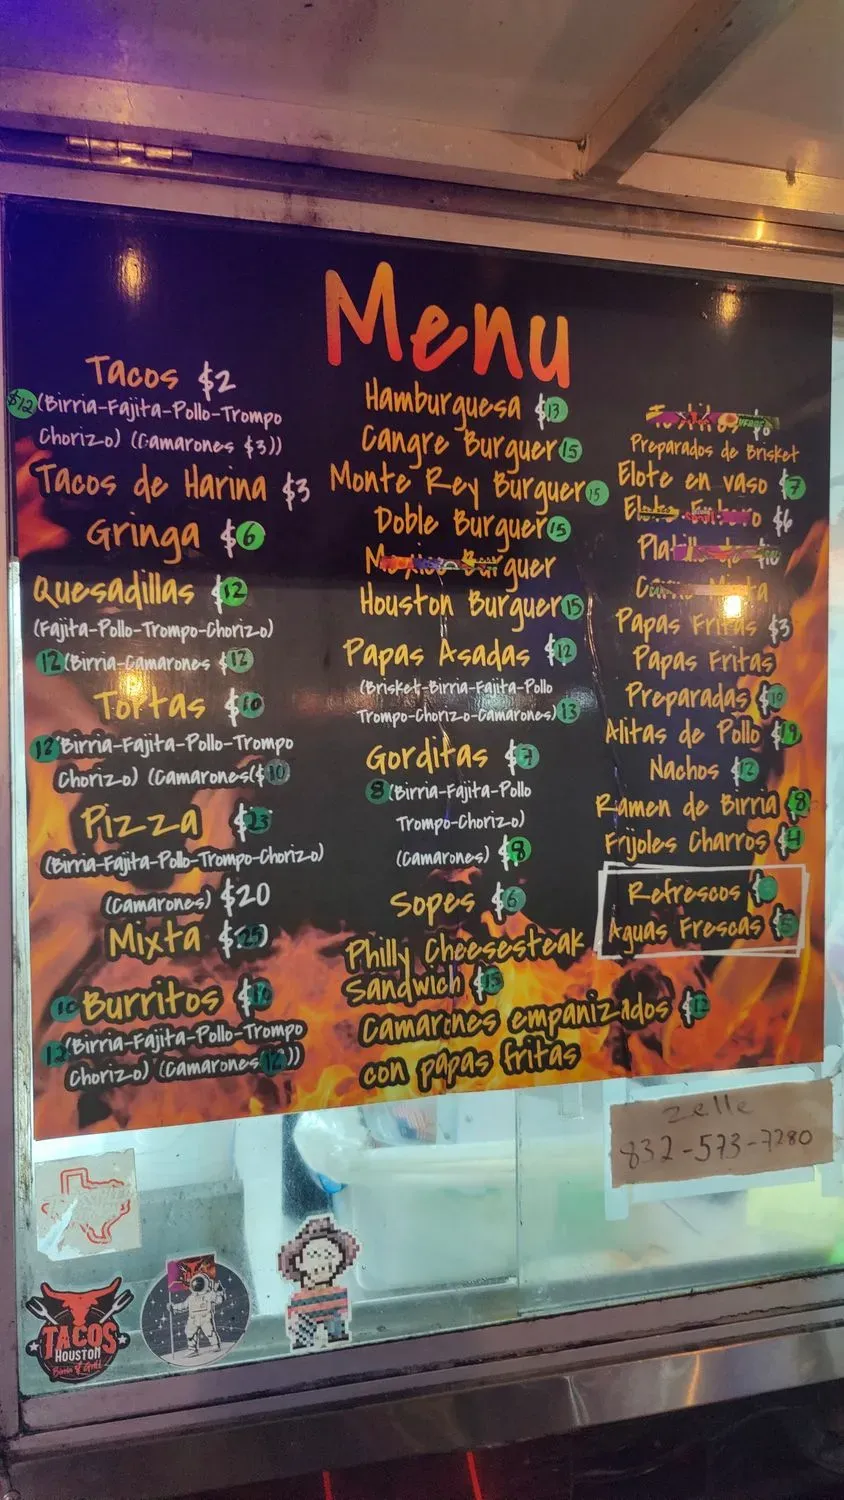 Menu
Tacos $2
$12 (Birria-Fajita-Pollo-Trompo
Chorizo) (Camarones $3))
Tacos de Harina $3
Gringa $6
Quesadillas $12
(Fajita-Pollo-Trompo-Chorizo)
12 (Birria-Camarones $12
Tortas $10
12 Birria-Fajita-Pollo-Trompo
Chorizo) (Camarones($10
Pizza $23
(Birria-Fajita-Pollo-Trompo-Chorizo)
(Camarones) $20
Mixta $25)
10 Burritos
12 (Birria-Fajita-Pollo-Trompo
Chorizo) (Camarones 12))
Hamburguesa $13
Cangre Burguer 15
Monte Rey Burguer 15
Doble Burguer 15
Burguer
Houston Burguer 15
Papas Asadas $12
(Brisket-Birria-Fajita-Pollo
Trompo-Chorizo-Camarones) 13
Gorditas $7
8 (Birria-Fajita-Pollo
Trompo-Chorizo)
(Camarones) $8
Sopes $6
Philly Cheesesteak
Sandwich $15
Camarones empanizados $12
con papas fritas
Preparados de Brisket
Elote en vaso $7
$6
Papas Fritas $3
Papas Fritas
Preparadas $10
Alitas de Pollo $19
Nachos $12
Ramen de Birria $8
Frijoles Charros $4
Refrescos
Aguas Frescas $5
zelle
832-573-7280
TACOS
HOUSTON
Birria & Grill